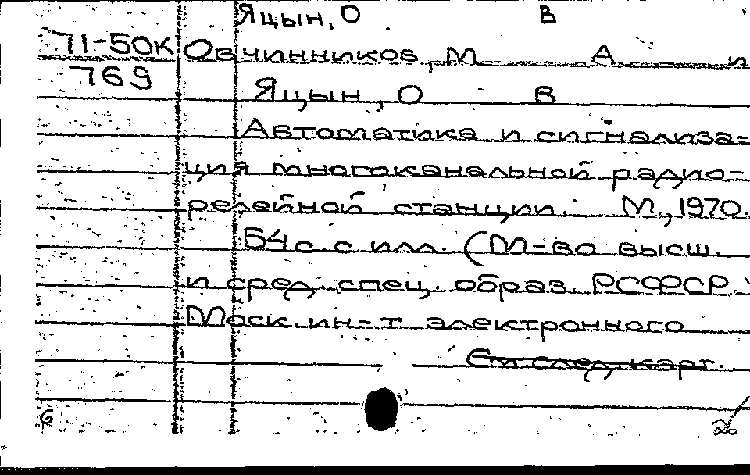 Яцын, О В
71-50К Овчинников, М А и
769
Яцын, О В
Автоматика и сигнализа=
ция многоканальной радио-
релейной станции. М., 1970.
54 с. с илл. (М-во высш.
и сред. спец. образ. РСФСР.
Моск. ин-т электронного
См след. карт.